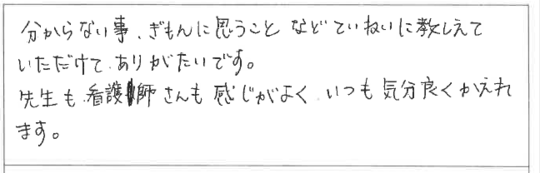 分からない事、ぎもんに思うこと などていねいに教しえて
いただけて ありがたいです。
先生も 看護師さんも 感じがよく、いつも 気分良くかえれ
ます。